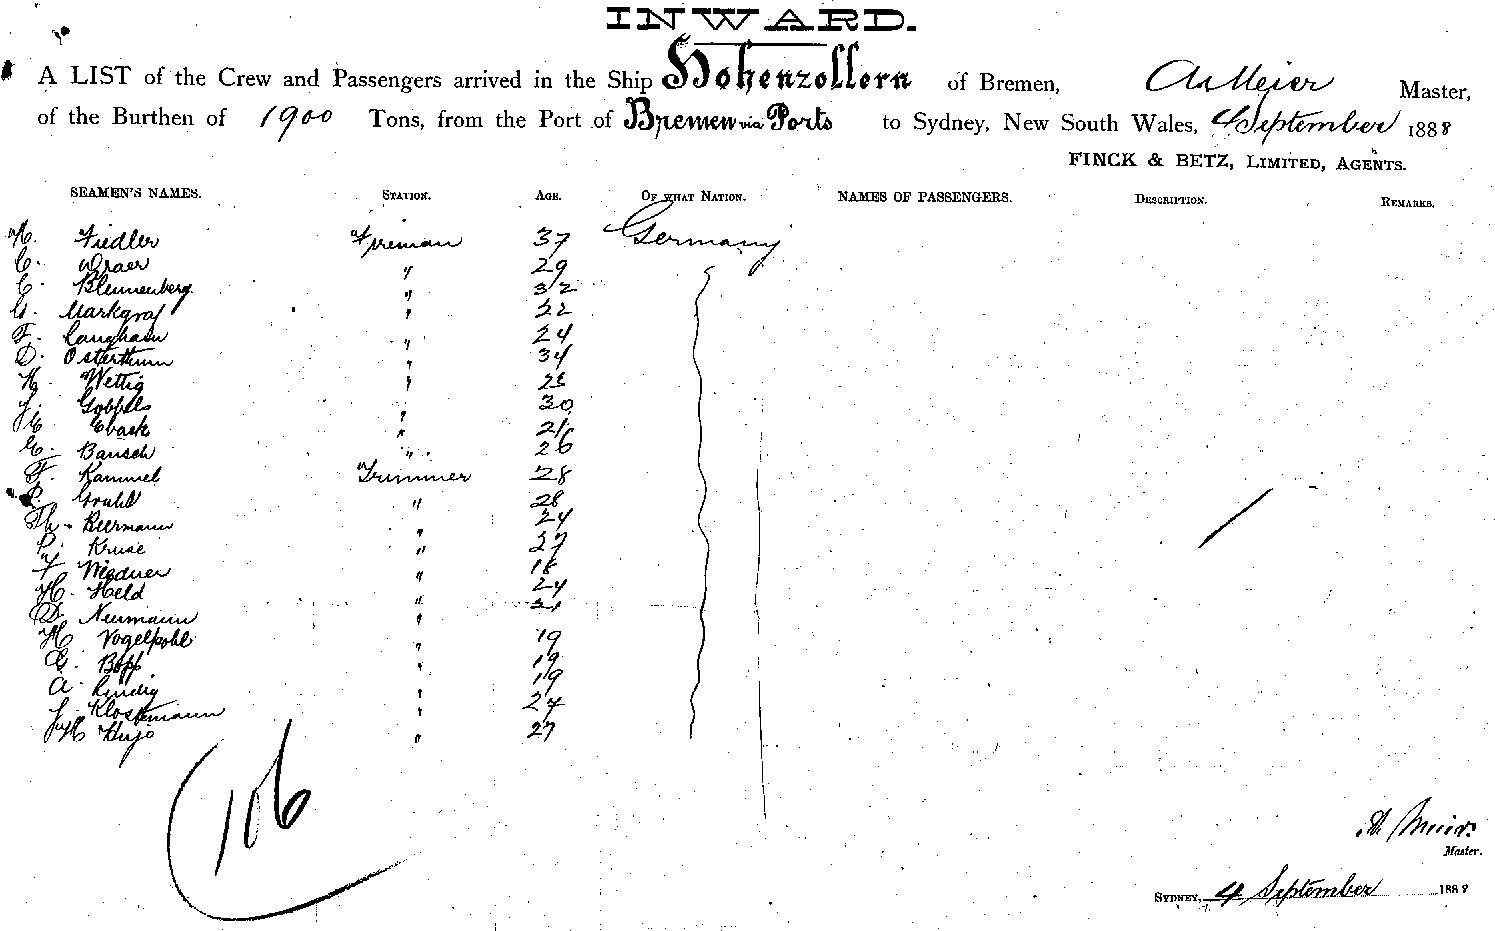 INWARD.
A LIST of the Crew and Passengers arrived in the Ship Hohenzollern of Bremen, A. Meier Master,
of the Burthen of 1900 Tons, from the Port of Bremen via Ports to Sydney, New South Wales, 4 September 1888
FINCK & BETZ, LIMITED, AGENTS.
SEAMEN'S NAMES. STATION. AGE. OF WHAT NATION. NAMES OF PASSENGERS. DESCRIPTION. REMARKS.
H. Fiedler Fireman 37 Germany
C. " 29
C. Blennenberg " 32
G. Markgraf " 22
F. Langham " 24
D. Osterthum " 34
H. Wettig "
J. Göbbels " 30
Eback "
E. Bansch " 26
F. Kammel Trimmer 28
" 28
Th. Biermann " 24
P. Kruse " 27
F. " 18
H. Held " 24
D. Neumann " 21
H. Vogelpohl " 19
G. Bopp " 19
A. " 19
J. Klostermann " 24
H. Hujo " 27
106
A. Meier
Master.
SYDNEY, 4 September 1888